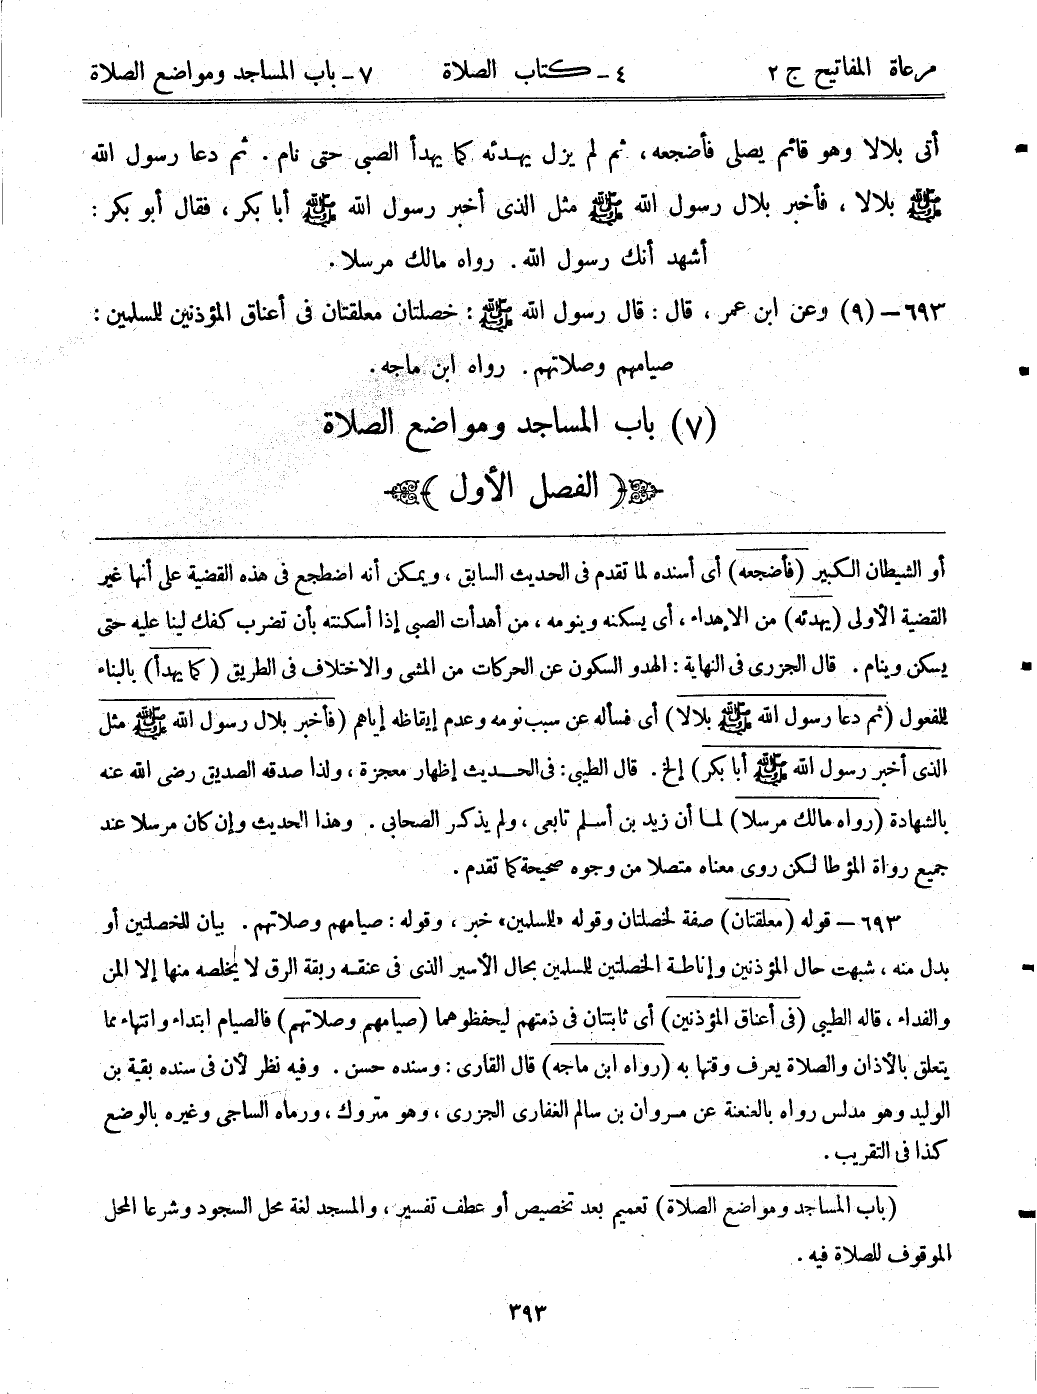 مرعاة المفاتيح ج ٢ ٤ - كتاب الصلاة ٧ - باب المساجد ومواضع الصلاة
أتى بلالا وهو قائم يصلى فأضجعه، ثم لم يزل يهدئه كما يهدأ الصبى حتى نام . ثم دعا رسول الله
ﷺ بلالا ، فأخبر بلال رسول الله ﷺ مثل الذى أخبر رسول الله ﷺ أبا بكر ، فقال أبو بكر :
أشهد أنك رسول الله . رواه مالك مرسلا .
٦٩٣ - (٩) وعن ابن عمر ، قال : قال رسول الله ﷺ : خصلتان معلقتان فى أعناق المؤذنين للمسلمين :
صيامهم وصلاتهم . رواه ابن ماجه .
(٧) باب المساجد ومواضع الصلاة
﴿ الفصل الأول ﴾
أو الشيطان الكبير (فأضجعه) أى أسنده لما تقدم فى الحديث السابق ، ويمكن أنه اضطجع فى هذه القضية على أنها غير
القضية الأولى (يهدئه) من الإهداء ، أى يسكنه وينومه ، من أهدأت الصبى إذا أسكنته بأن تضرب كفك لينا عليه حتى
يسكن وينام . قال الجزرى فى النهاية : الهدو السكون عن الحركات من المشى والاختلاف فى الطريق (كما يهدأ) بالبناء
للمفعول (ثم دعا رسول الله ﷺ بلالا) أى فسأله عن سبب نومه وعدم إيقاظه إياهم (فأخبر بلال رسول الله ﷺ مثل
الذى أخبر رسول الله ﷺ أبا بكر) إلخ . قال الطيبى : فى الحديث إظهار معجزة ، ولذا صدقه الصديق رضى الله عنه
بالشهادة (رواه مالك مرسلا) لما أن زيد بن أسلم تابعى ، ولم يذكر الصحابى . وهذا الحديث وإن كان مرسلا عند
جميع رواة المؤطا لكن روى معناه متصلا من وجوه صحيحة كما تقدم .
٦٩٣ - قوله (معلقتان) صفة لخصلتان وقوله «للمسلمين» خبر ، وقوله : صيامهم وصلاتهم . بيان للخصلتين أو
بدل منه ، شبهت حال المؤذنين وإناطة الخصلتين للمسلمين بحال الأسير الذى فى عنقه ربقة الرق لا يخلصه منها إلا المن
والفداء ، قاله الطيبى (فى أعناق المؤذنين) أى ثابتتان فى ذمتهم ليحفظوهما (صيامهم وصلاتهم) فالصيام ابتداء وانتهاء مما
يتعلق بالأذان والصلاة يعرف وقتها به (رواه ابن ماجه) قال القارى : وسنده حسن . وفيه نظر لأن فى سنده بقية بن
الوليد وهو مدلس رواه بالعنعنة عن مروان بن سالم الغفارى الجزرى ، وهو متروك ، ورماه الساجى وغيره بالوضع
كذا فى التقريب .
(باب المساجد ومواضع الصلاة) تعميم بعد تخصيص أو عطف تفسير ، والمسجد لغة محل السجود وشرعا المحل
الموقوف للصلاة فيه .
٣٩٣